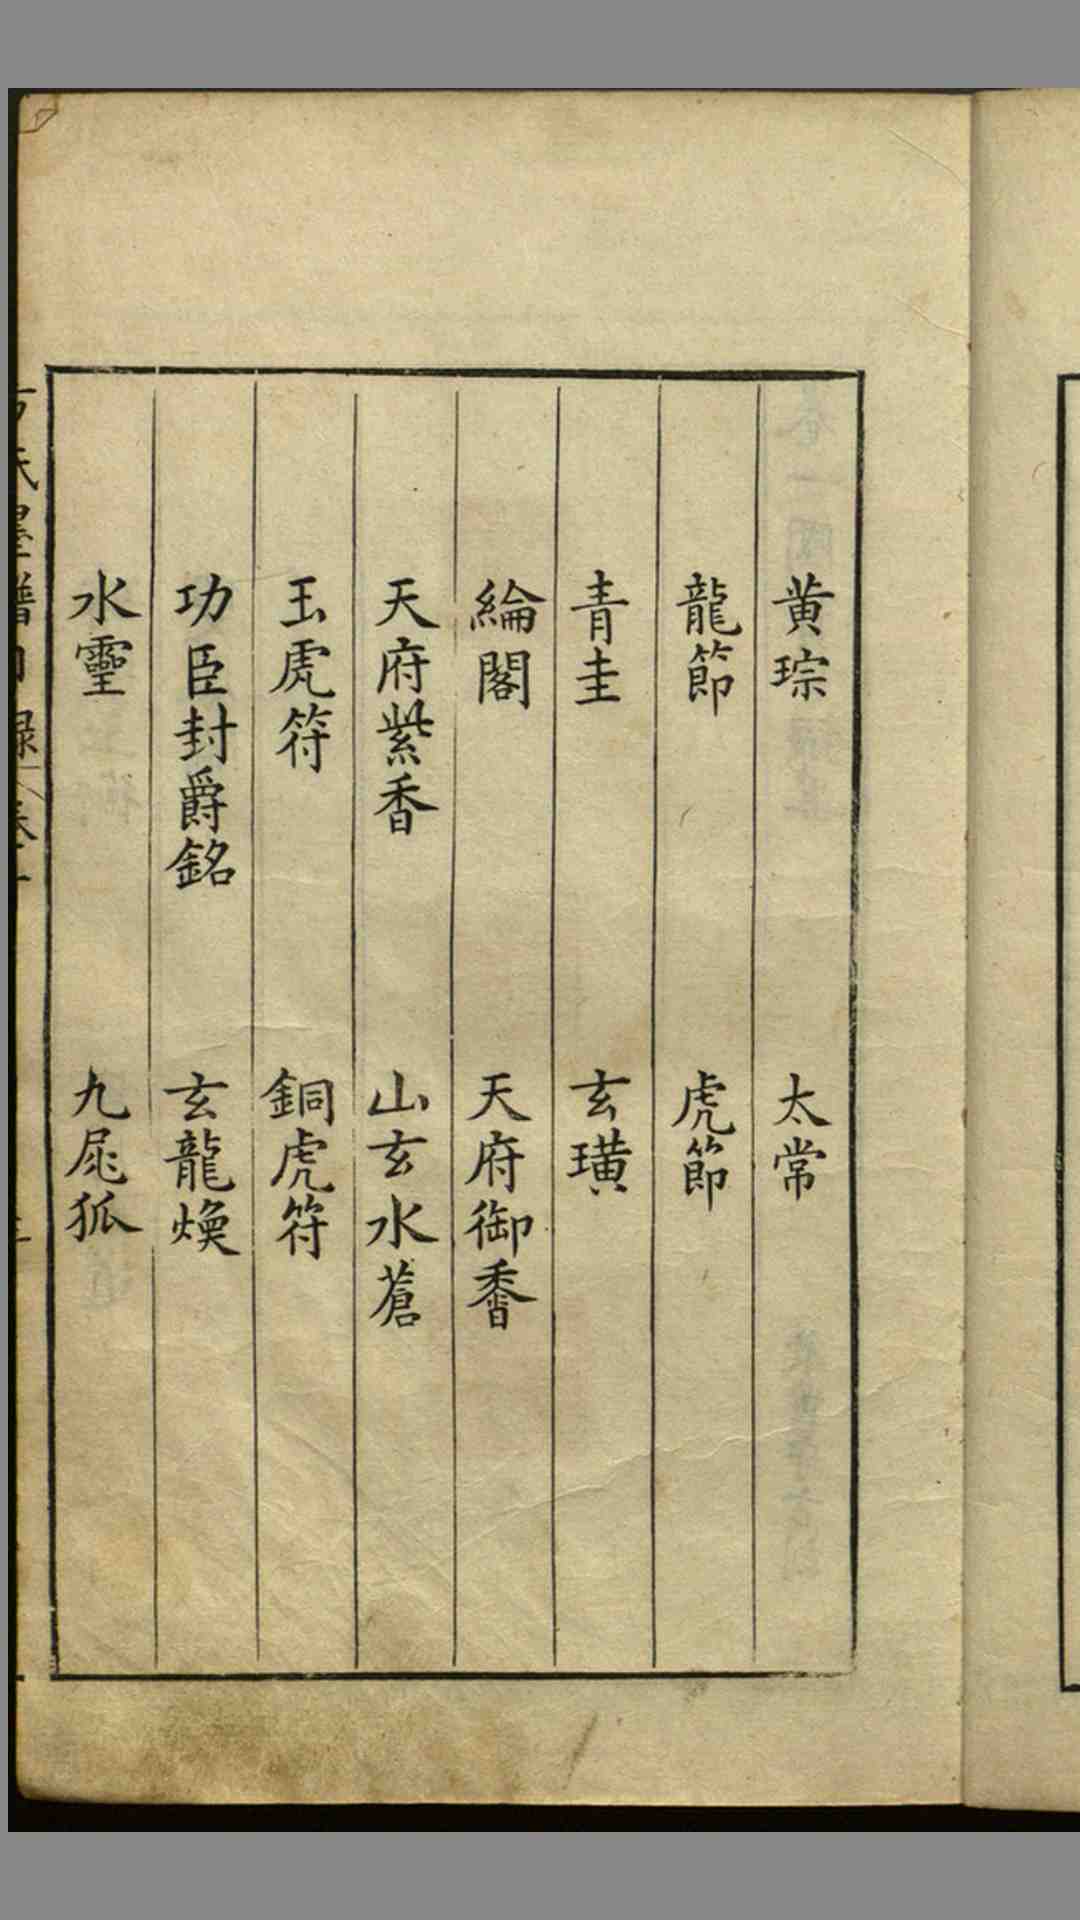 黄琮 太常
龍節 虎節
青圭 玄璜
綸閣 天府御香
天府紫香 山玄水蒼
玉虎符 銅虎符
功臣封爵銘 玄龍煥
水靈 九尾狐
方氏墨譜目録 卷一